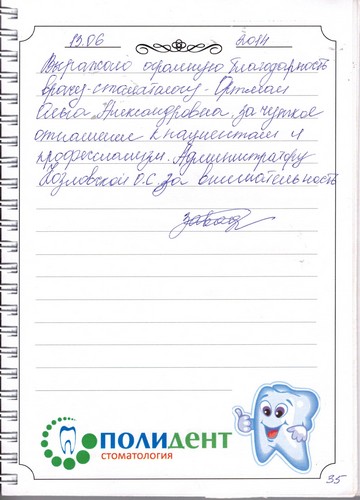 13.06 2014
Выражаю огромную благодарность
врачу-стоматологу -
Ольга Александровна за чуткое
отношение к пациентам и
профессионализм. Администратору
Козловской О.С за внимательность
ПОЛИДЕНТ
СТОМАТОЛОГИЯ
35